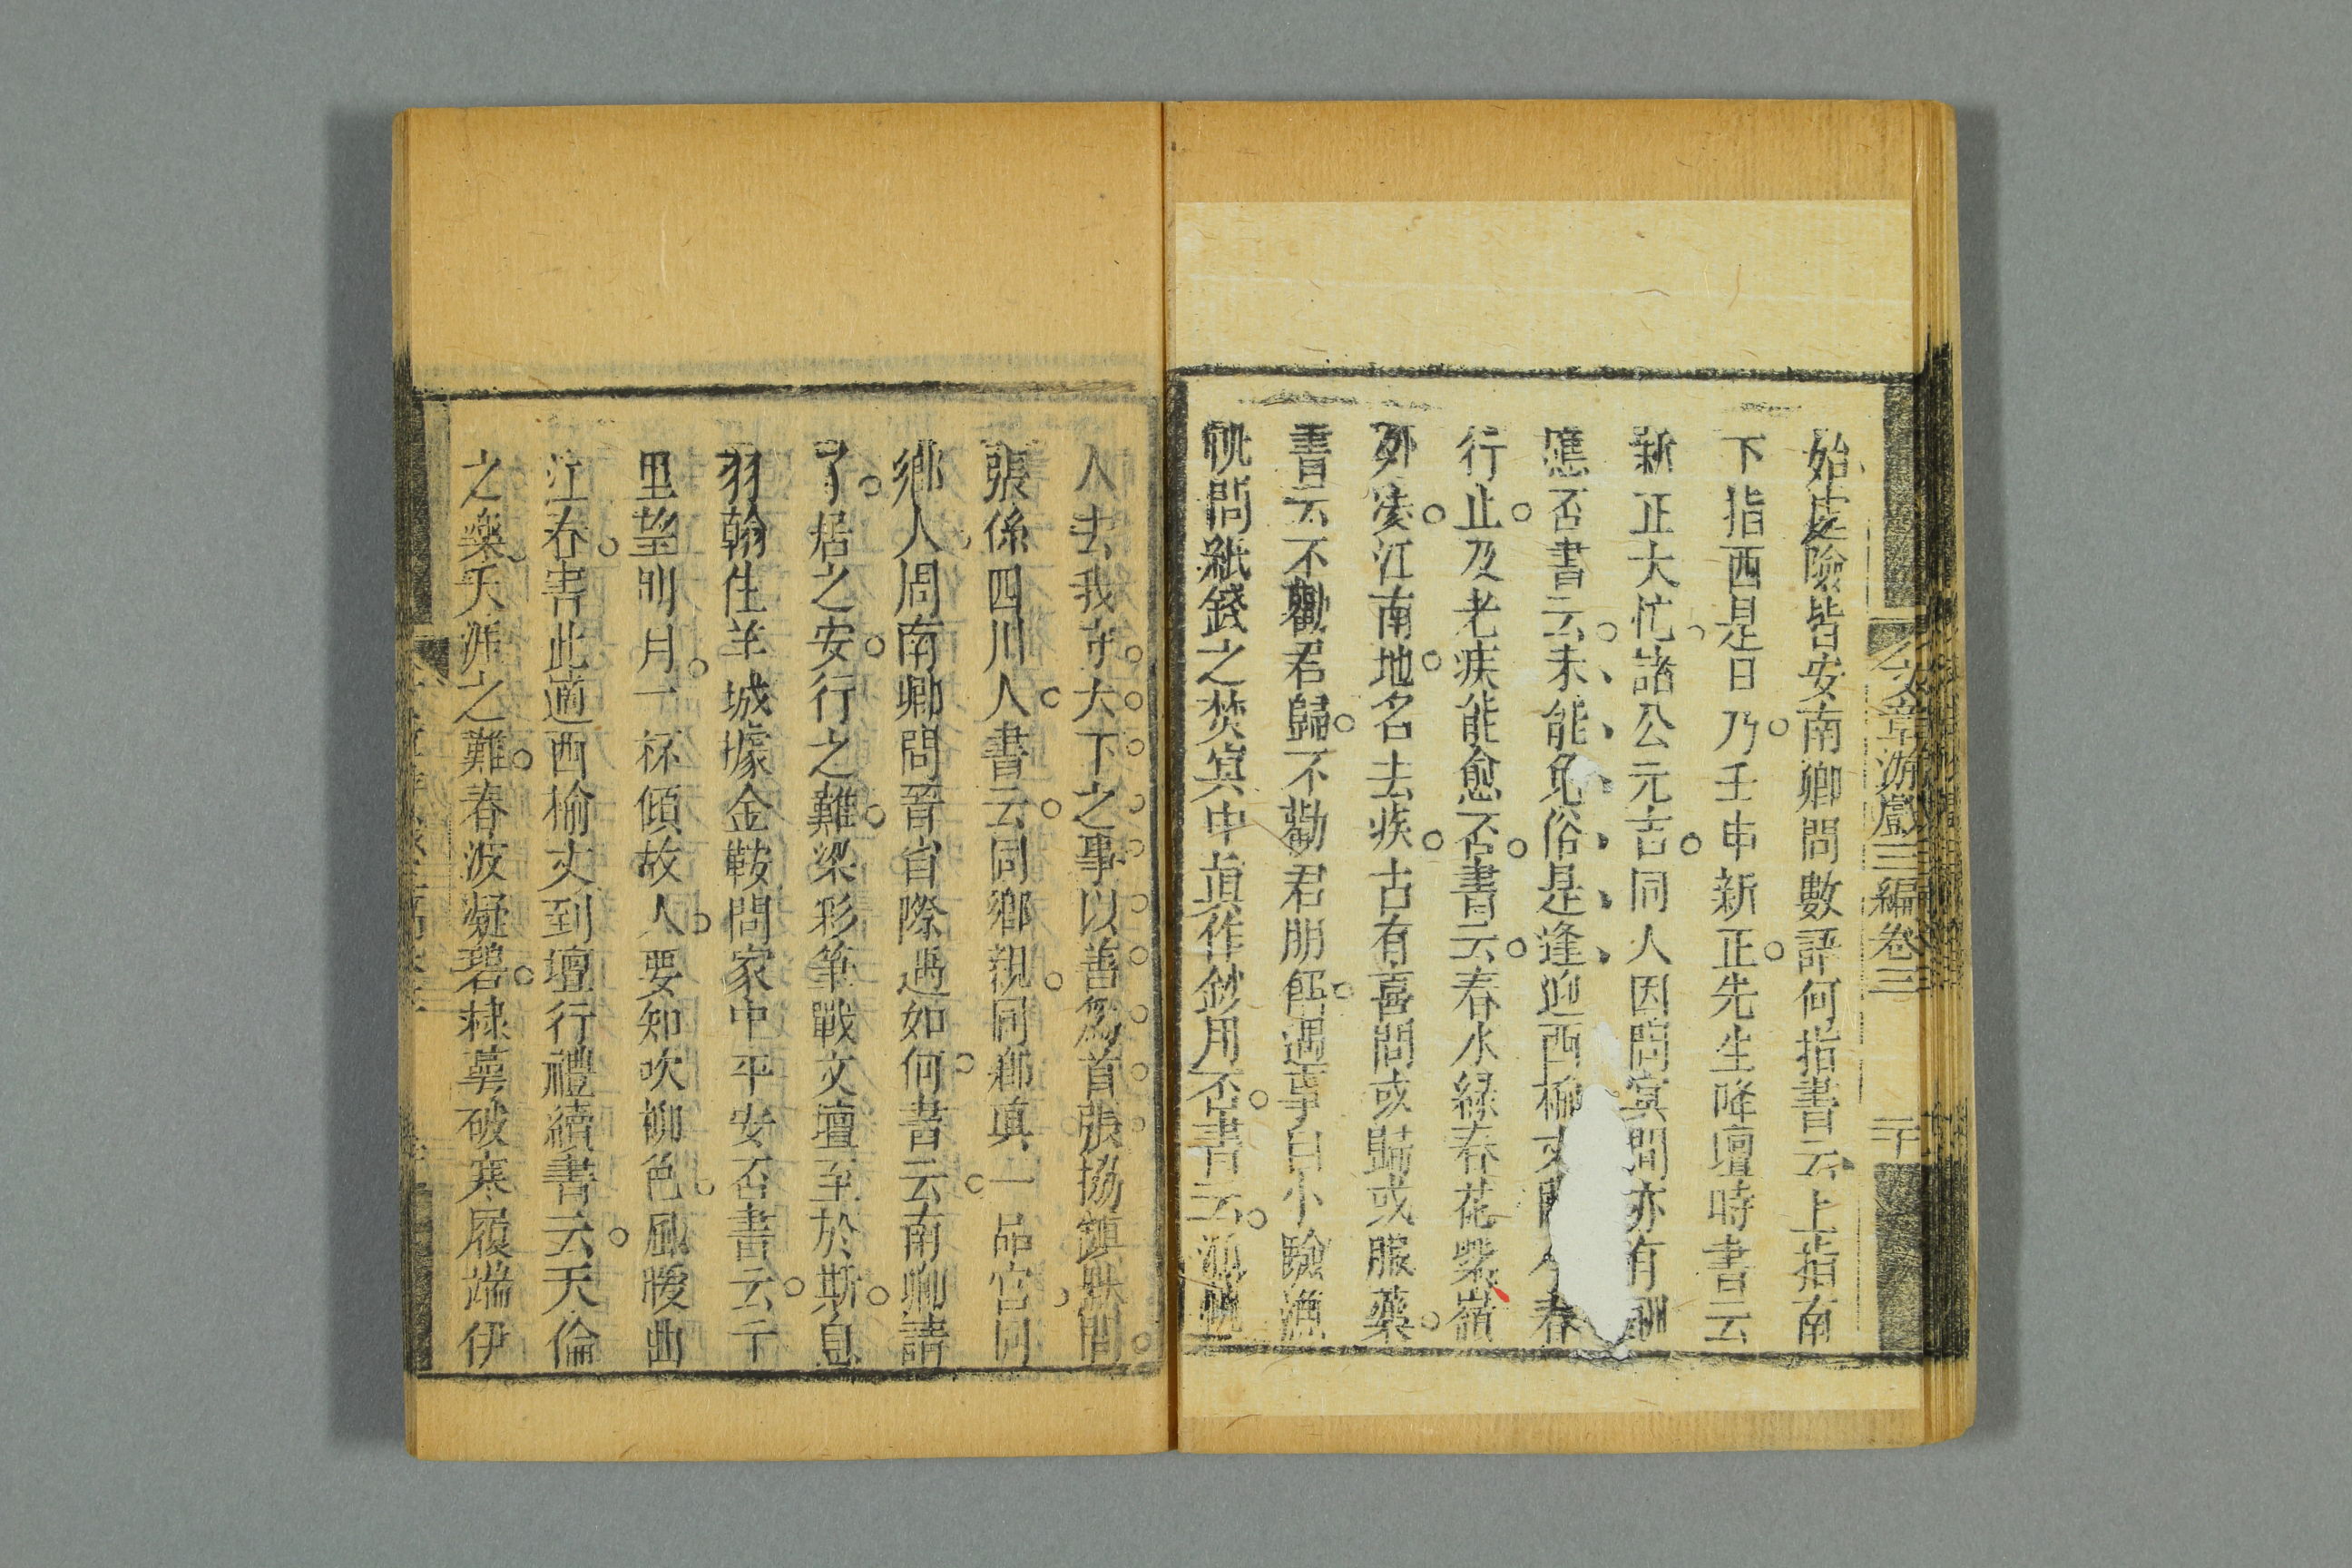 文章游戲三編卷三
二十
始皮險皆安南卿問數語何指書云上指南
下指西是日乃壬申新正先生降壇時書云
新正大忙諸公元吉同人因問冥間亦有酬
應否書云未能免俗是逢迎西榆丈 春
行止及老疾能愈否書云春水綠春花紫嶺
外凌江南地名去疾古有喜問或歸或服藥
書云不勸君歸不勸君服 遇事自小驗漁
帆問紙錢之焚冥中眞作鈔用否書云漁帆
人去我亦大下之事以善爲首張協鎭 問
張係四川人書云同鄉親同鄉真一品官同
鄉人周南卿問晉省際遇如何書云南卿請
了居之安行之難梁彩筆戰文壇至於斯息
羽翰住羊城據金鞍問家中平安否書云千
里望別月一杯傾故人要知吹柳色風暖曲
江春書此適西榆丈到壇行禮續書云天倫
之樂天涯之難春波凝碧棣萼破寒履端伊